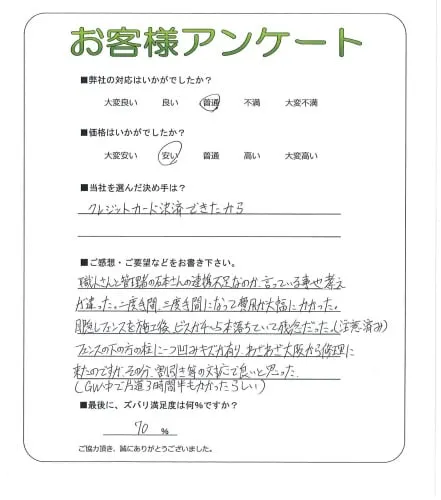 お客様アンケート
■弊社の対応はいかがでしたか？
大変良い 良い 普通 不満 大変不満
■価格はいかがでしたか？
大変安い 安い 普通 高い 大変高い
■当社を選んだ決め手は？
クレジットカード決済できたから
■ご感想・ご要望などをお書き下さい。
職人さんと管理者の石本さんの連携不足なのか、言っている事や考え
が違った。二度手間、三度手間になって費用が大幅にかかった。
目隠しフェンスを施工後、ビスが4〜5本落ちていて残念だった。(注意済み)
フェンスの下の方の柱に一つ凹みキズが有り、わざわざ大阪から修理に
来たのですが、その分、割引き等の対応で良いと思った。
(GW中で片道3時間半もかかったらしい)
■最後に、ズバリ満足度は何％ですか？
70 %
ご協力頂き、誠にありがとうございました。